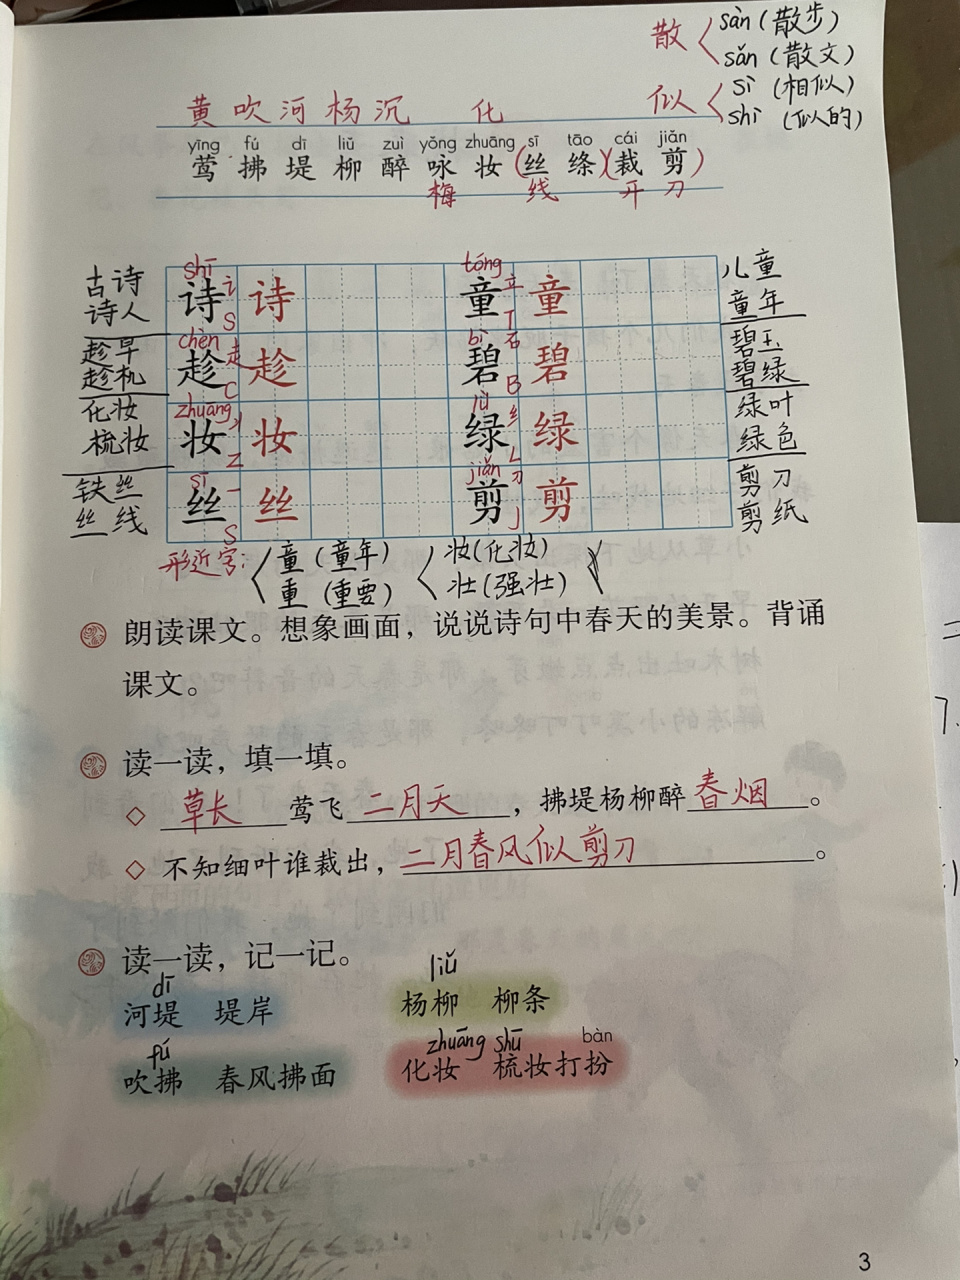 散 sàn(散步)
sǎn(散文)
似 sì(相似)
shì(似的)
黄 吹 河 杨 沉 化
yīng fú dī liǔ zuì yǒng zhuāng sī tāo cái jiǎn
莺 拂 堤 柳 醉 咏 妆 (丝 绦)(裁 剪)
梅 线 开 刀
shī tóng
古诗 诗 讠 诗 童 立 童 儿童
诗人 S T 童年
chèn bì
趁早 趁 走 趁 碧 石 碧 碧玉
趁机 C B 碧绿
zhuāng lǜ
化妆 妆 丬 妆 绿 纟 绿 绿叶
梳妆 Z L 绿色
sī jiǎn
铁丝 丝 一 丝 剪 刀 剪 剪刀
丝线 S J 剪纸
形近字: 童(童年) 妆(化妆)
重(重要) 壮(强壮)
朗读课文。想象画面，说说诗句中春天的美景。背诵
课文。
读一读，填一填。
◇ 草长莺飞二月天，拂堤杨柳醉春烟。
◇ 不知细叶谁裁出，二月春风似剪刀。
读一读，记一记。
dī liǔ
河堤 堤岸 杨柳 柳条
fú zhuāng shū bàn
吹拂 春风拂面 化妆 梳妆打扮
3